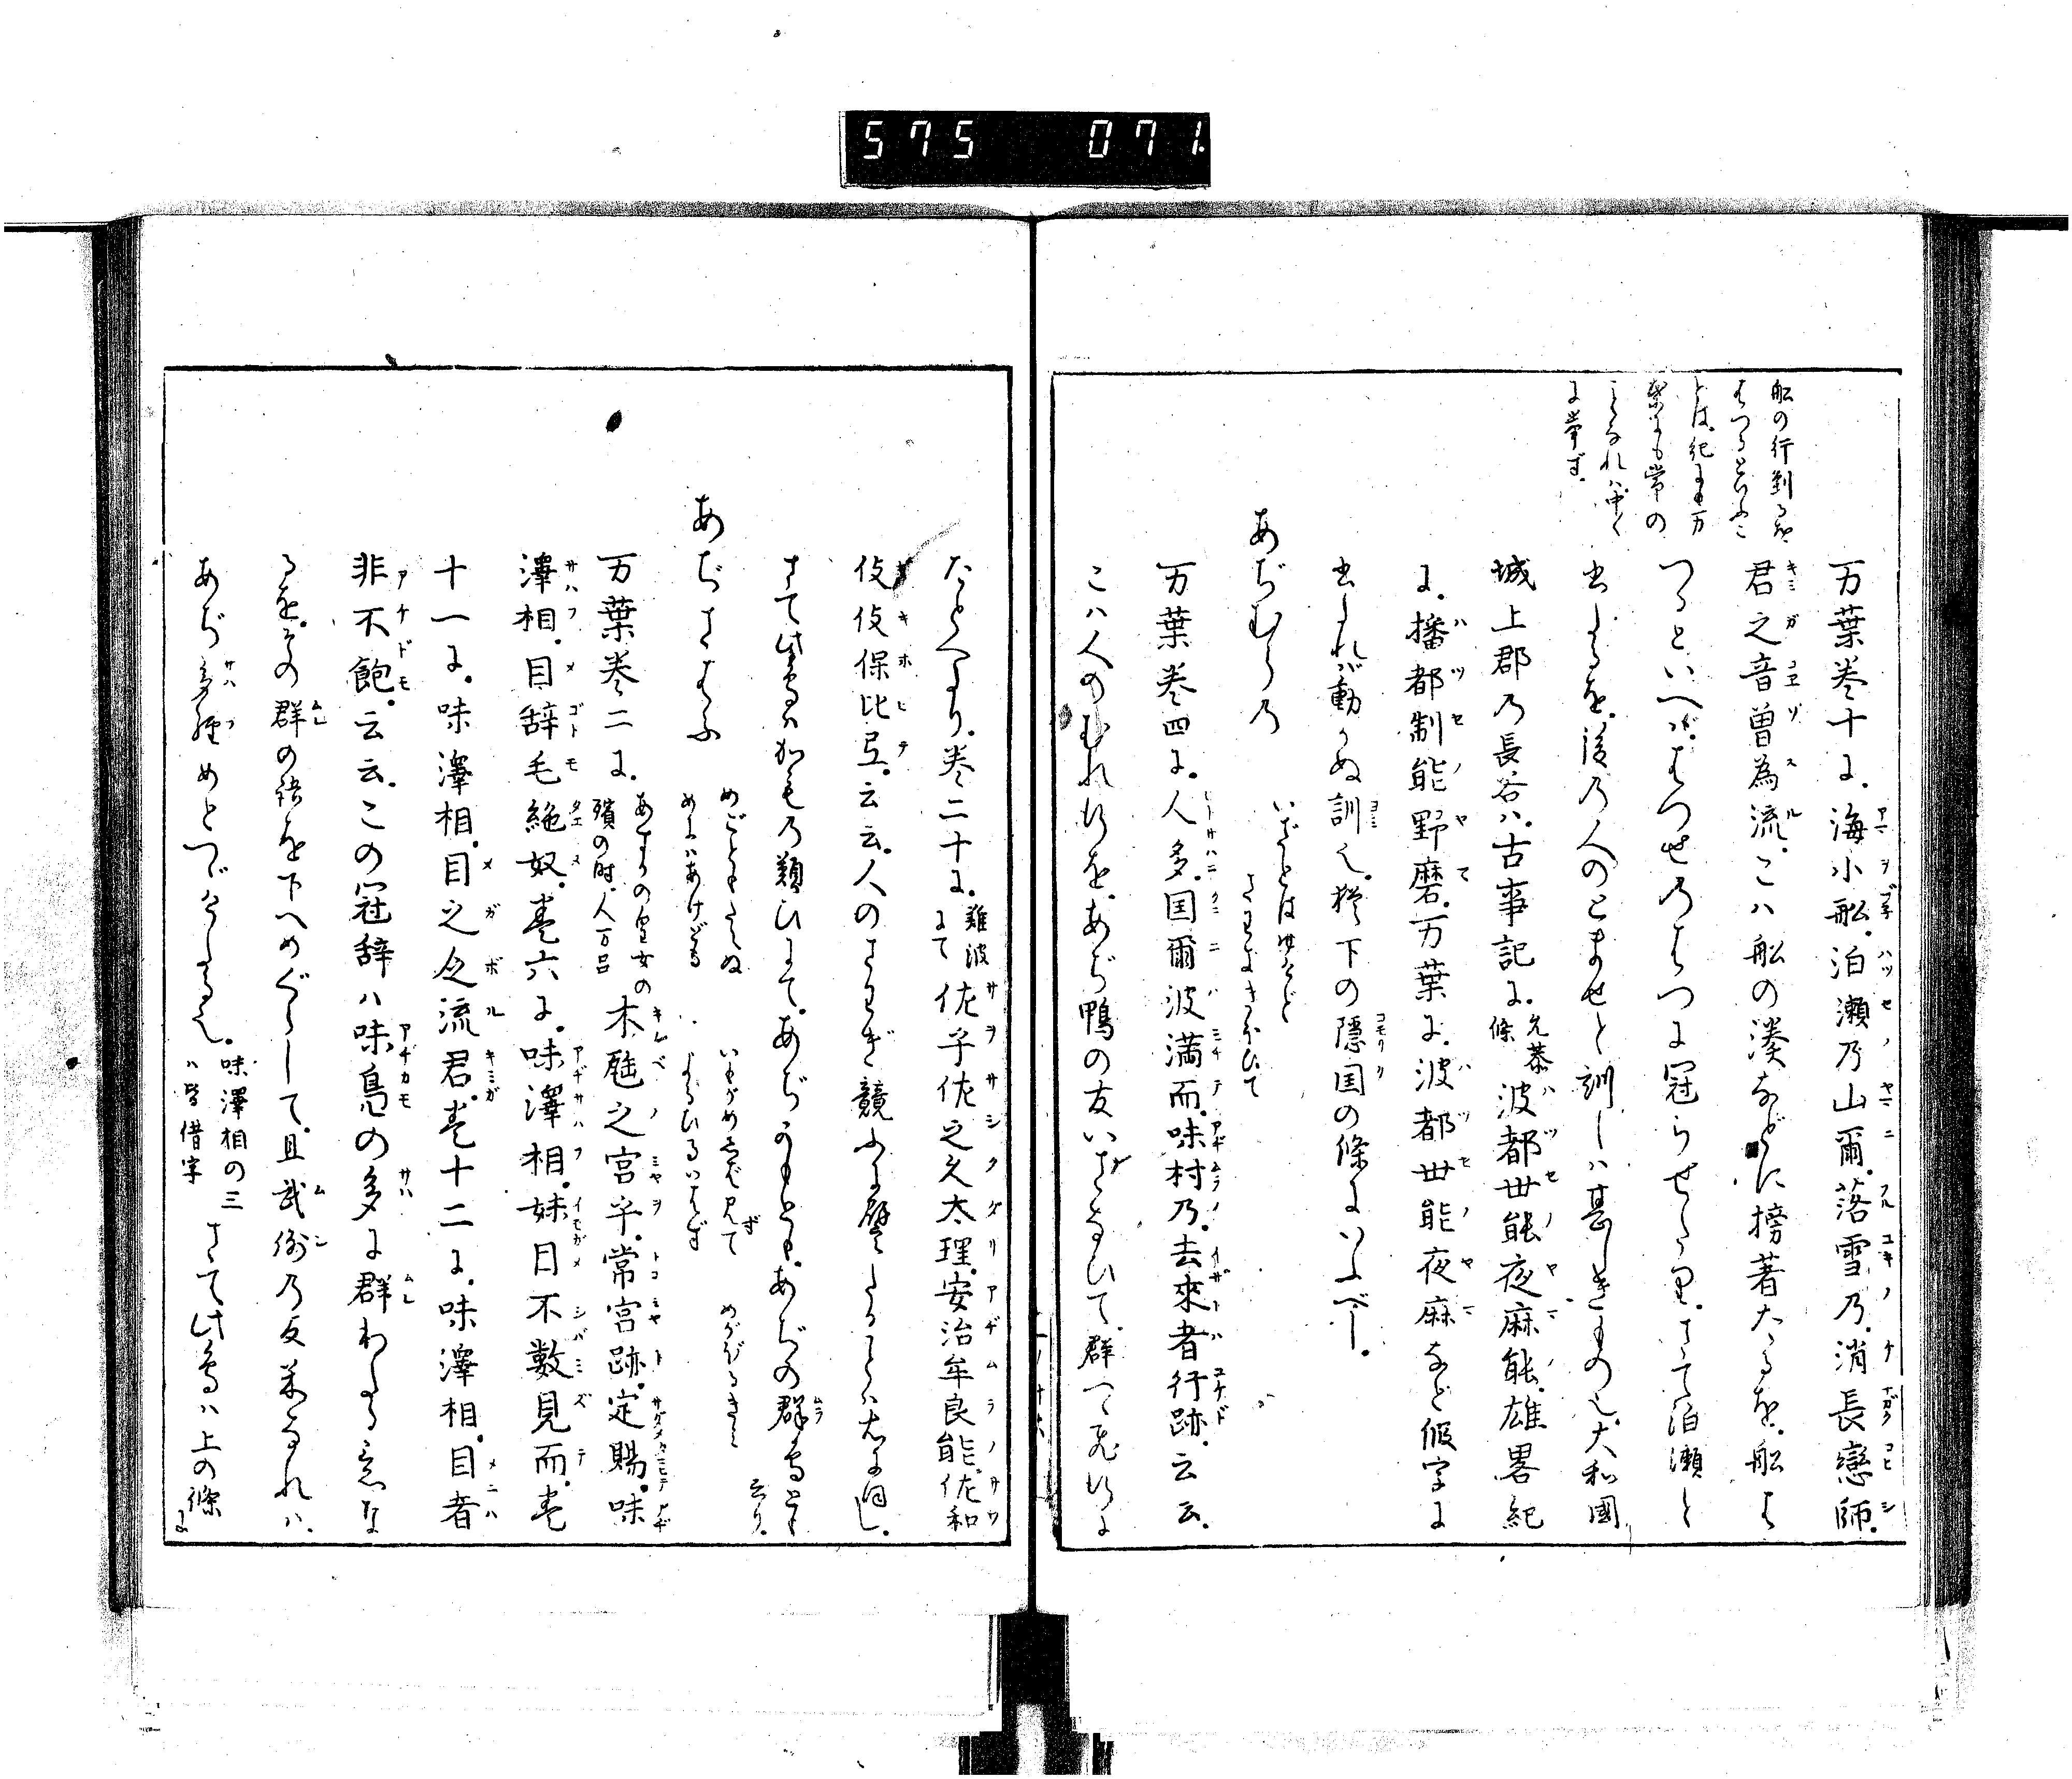 575 071.
船の行到るを
はつるといふこ
とは紀にも万
葉にも常の
ことなれは中〱
に挙ず
万葉巻十に海小船泊瀬乃山爾落雪乃消長戀師
君之音曽為流こハ船の湊などに榜著たるを船は
つるといへばはつせのはつに冠らせたりさて泊瀬と
書しを後乃人のとませと訓しハ甚しきもの也大和國
城上郡乃長谷ハ古事記に允恭條波都世能夜麻能雄畧紀
に播都制能野麿万葉に波都世能夜麻など假字に
書しれバ動かぬ訓也猶下の隠国の條にいふべし
あぢむらの いざとはゆけど さわぎきほひて
万葉巻四に人多国爾波満而味村乃去來者行跡云云
こハ人のむれ行をあぢ鴨の友いざなひて群つゝ飛行に
たとへたり巻二十に難波にて佐乎佐之久太理安治牟良能佐和
伎伎保比弖云云人のさわぎ競ふに譬しことハ右に同し
さて此鳥ハかもの類ひにてあぢかもともあぢの群鳥とも云り
あぢさはふ めごともたえぬ めにハあけども いもがめしば見ずて よるひるいはず めがほるきみ
万葉巻二にあすかの皇女の殯の時人万呂木𦨞之宮乎常宮跡定賜味
澤相目辞毛絶奴巻六に味澤相妹目不數見而巻
十一に味澤相目之乏流君巻十二に味澤相目者
非不飽云云この冠辞ハ味鳧の多に群わたる意な
るをその群の語を下へめぐらして且武倫の反米なれハ
あぢ多經めとつゞけしなり味澤相の三ハ皆借字さて此鳥ハ上の條に